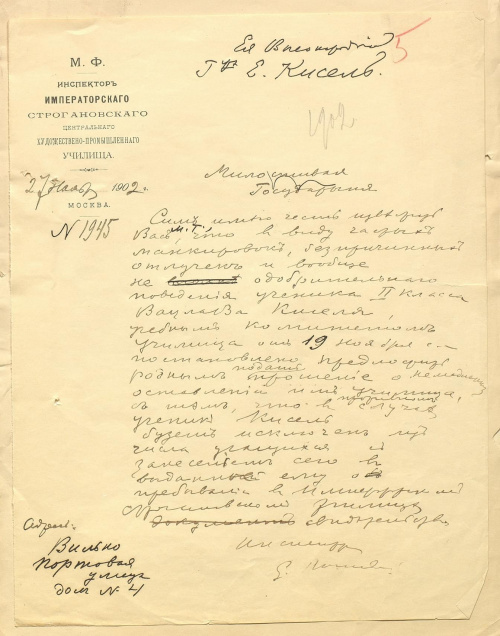 Ея Высокородію
Г-жѣ Е. Кисель.
5
1902
М. Ф.
ИНСПЕКТОРЪ
ИМПЕРАТОРСКАГО
СТРОГАНОВСКАГО
ЦЕНТРАЛЬНАГО
ХУДОЖЕСТВЕННО-ПРОМЫШЛЕННАГО
УЧИЛИЩА.
27 Нояб 1902 г.
МОСКВА.
N 1945
Милостивая
Государыня
Симъ имѣю честь
Васъ, М. Г., что въ виду частыхъ
манкировокъ, безпричинныхъ
отлучекъ и вообще
не одобрительнаго
поведенія ученика II класса
Вацлава Киселя,
учебнымъ Комитетомъ
училища отъ 19 ноября
постановлено предложить
роднымъ подать прошеніе о
оставленіи имъ училища,
съ тѣмъ, что въ случаѣ
ученикъ Кисель
будетъ исключенъ изъ
числа учащихся съ
занесеніемъ сего въ
выданный ему о
пребываніи въ
училищѣ
документъ
Инспекторъ
Адресъ:
Вильно
Портовая
улица
домъ N 4